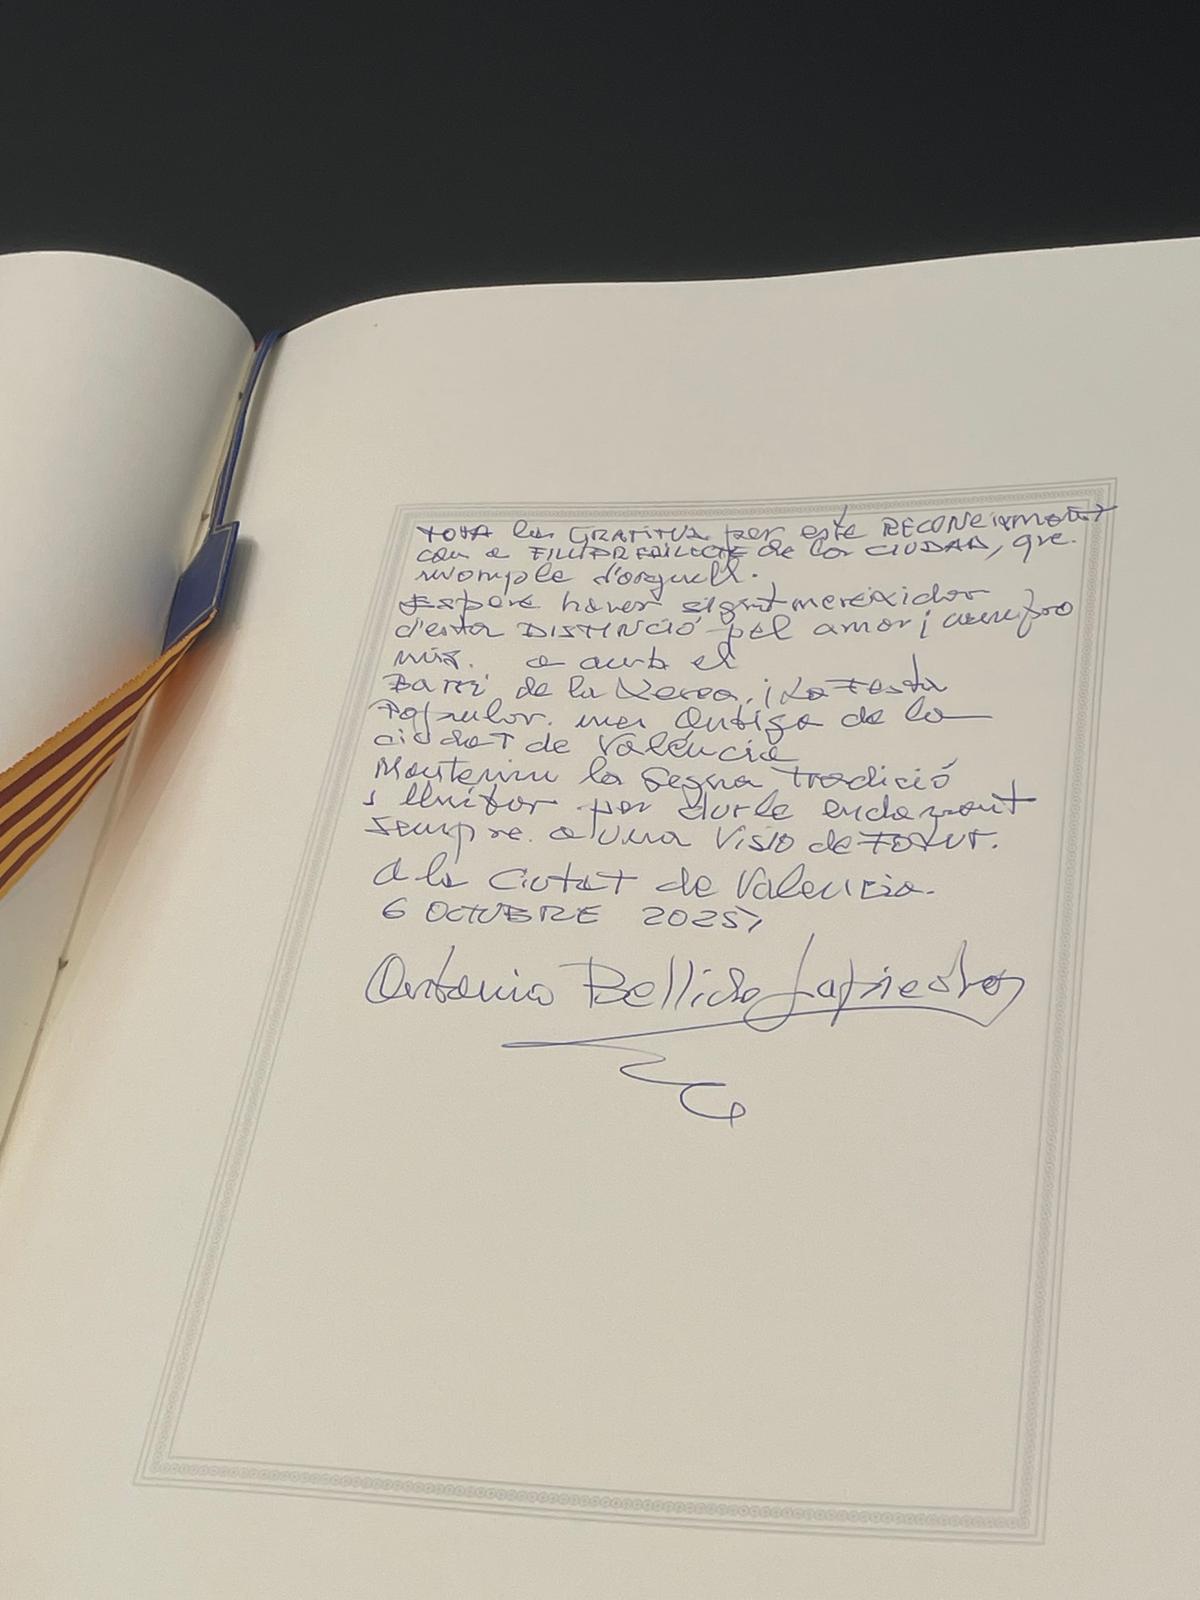 TOTA la GRATITUD per este RECONEIXMENT
com a FILLPREDILECTE de la CIUDAD, que
m'omple d'orgull.
Espere haver sigut mereixidor
d'esta DISTINCIÓ pel amor i
a amb el
Barri de la Xerea, i La Festa
Popular mes Antiga de la
ciudat de València
Mantenim la Segua Tradició
i lluitar per durla endavant
sempre. a una Visio de FUTUR.
A la Ciutat de Valencia.
6 OCTUBRE 2025
Antonio Bellido Lapiedra